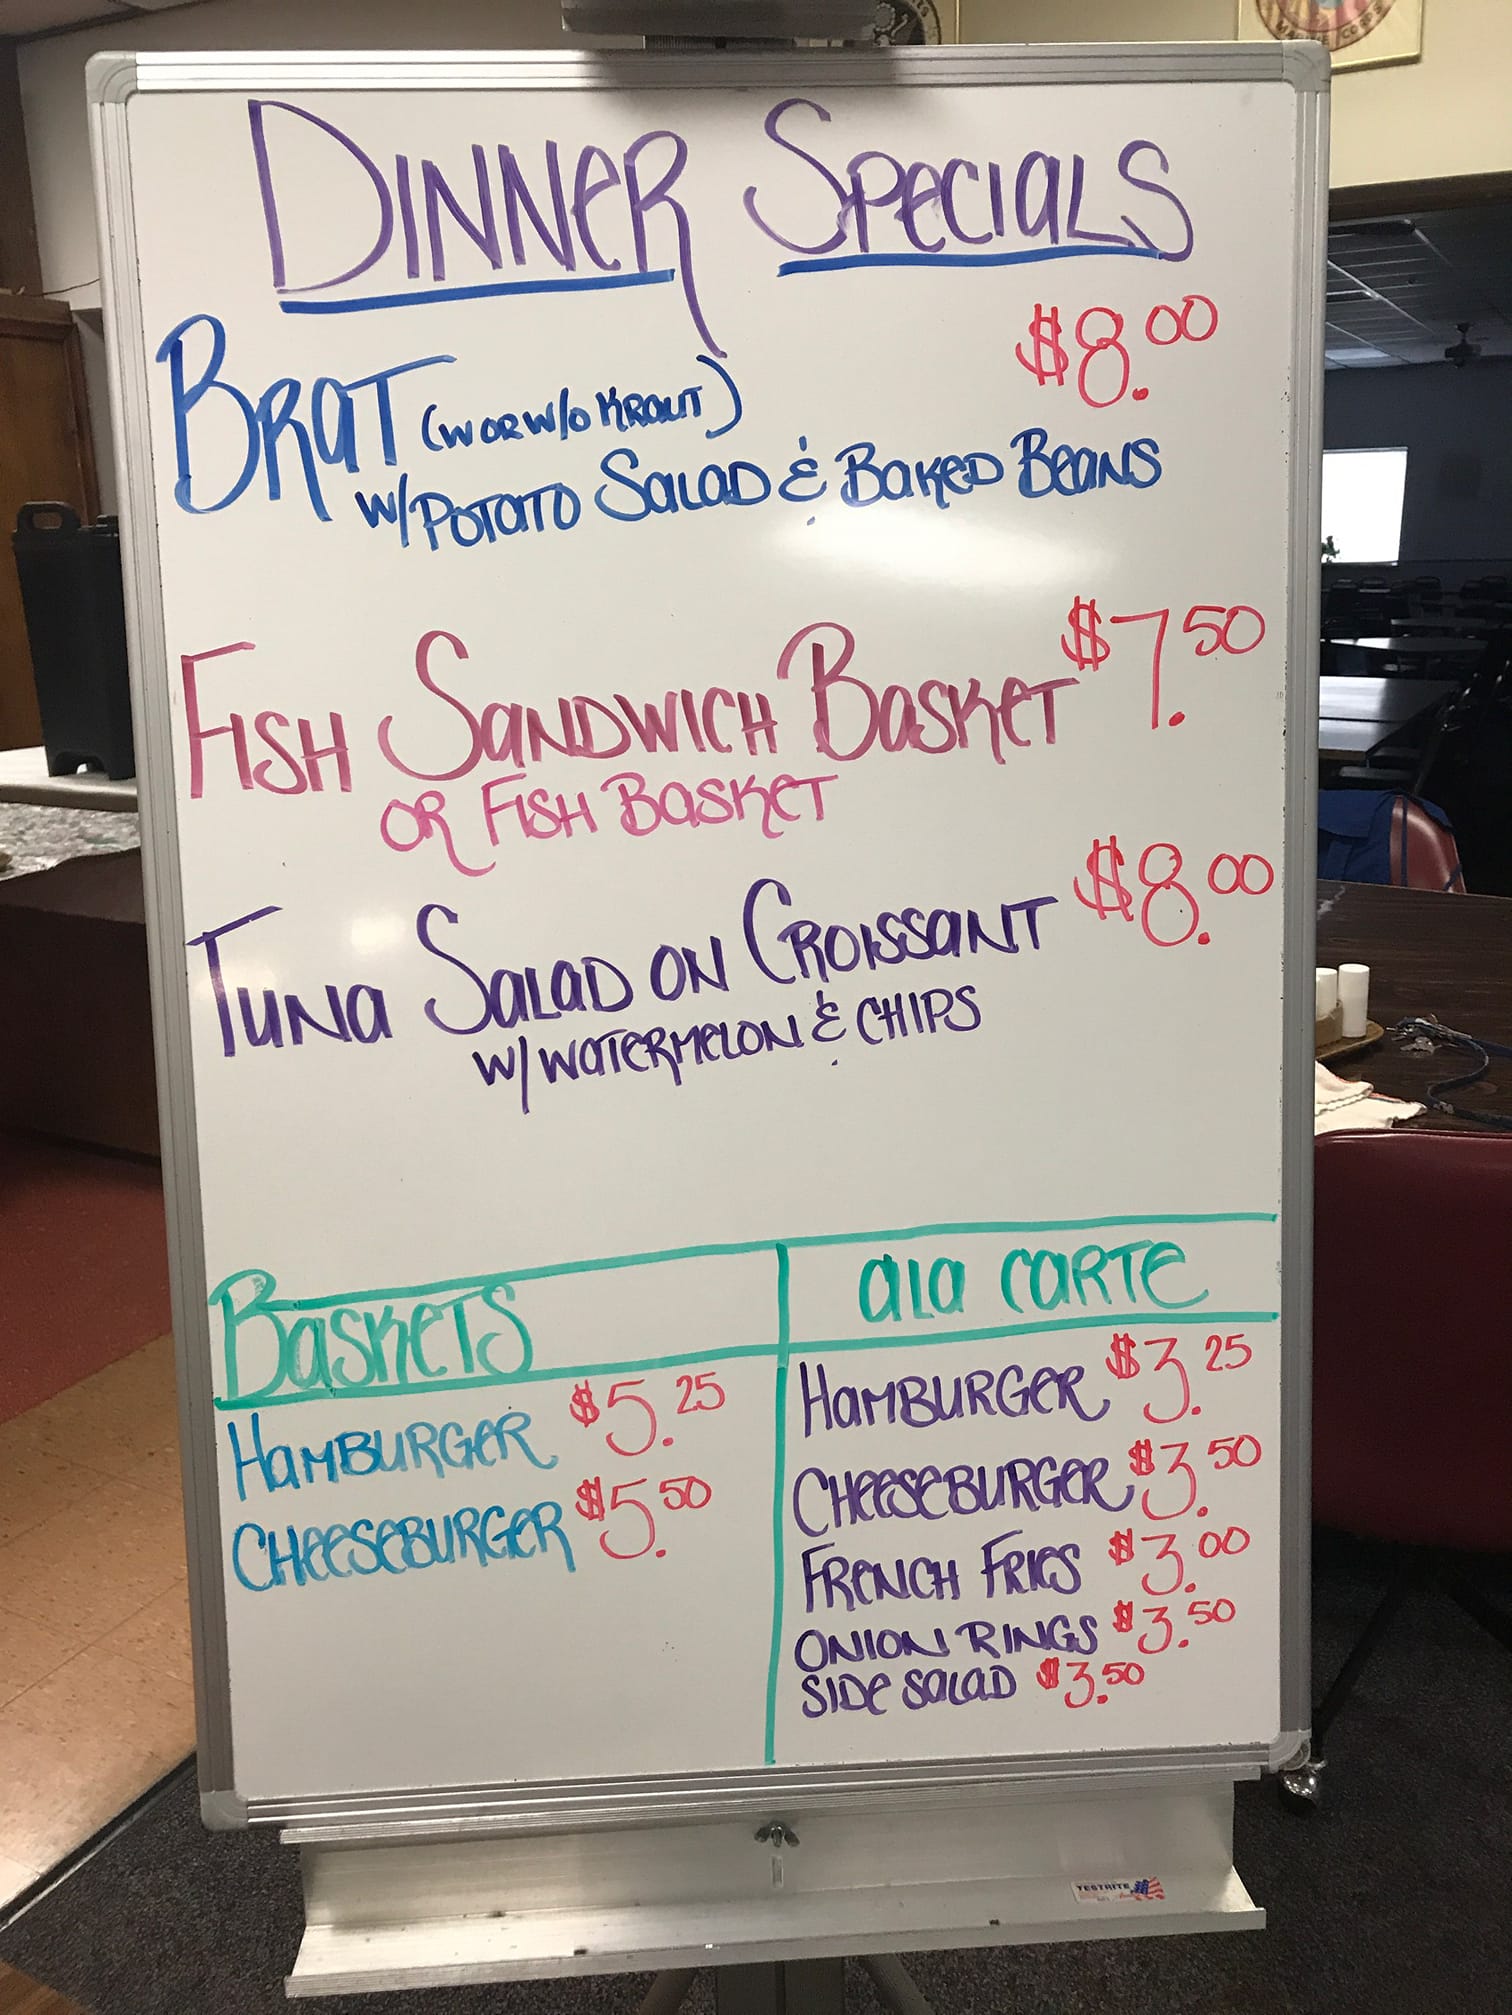 DINNER SPECIALS
BRAT (W OR W/O KRAUT) $8.00
W/POTATO SALAD & BAKED BEANS
FISH SANDWICH BASKET $7.50
OR FISH BASKET
TUNA SALAD ON CROISSANT $8.00
W/WATERMELON & CHIPS
BASKETS
HAMBURGER $5.25
CHEESEBURGER $5.50
ALA CARTE
HAMBURGER $3.25
CHEESEBURGER $3.50
FRENCH FRIES $3.00
ONION RINGS $3.50
SIDE SALAD $3.50
TESTRITE